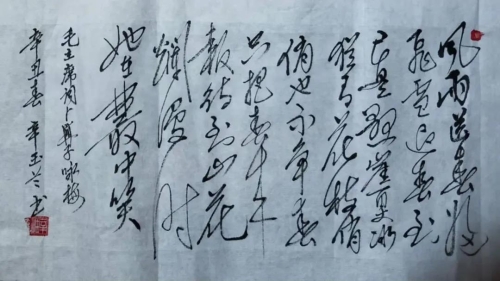 风雨送春歸
飛雪迎春到
已是懸崖百丈冰
猶有花枝俏
俏也不争春
只把春来
報待到山花
爛漫时
她在叢中笑
毛主席词卜算子咏梅
辛丑春 辛玉兰书